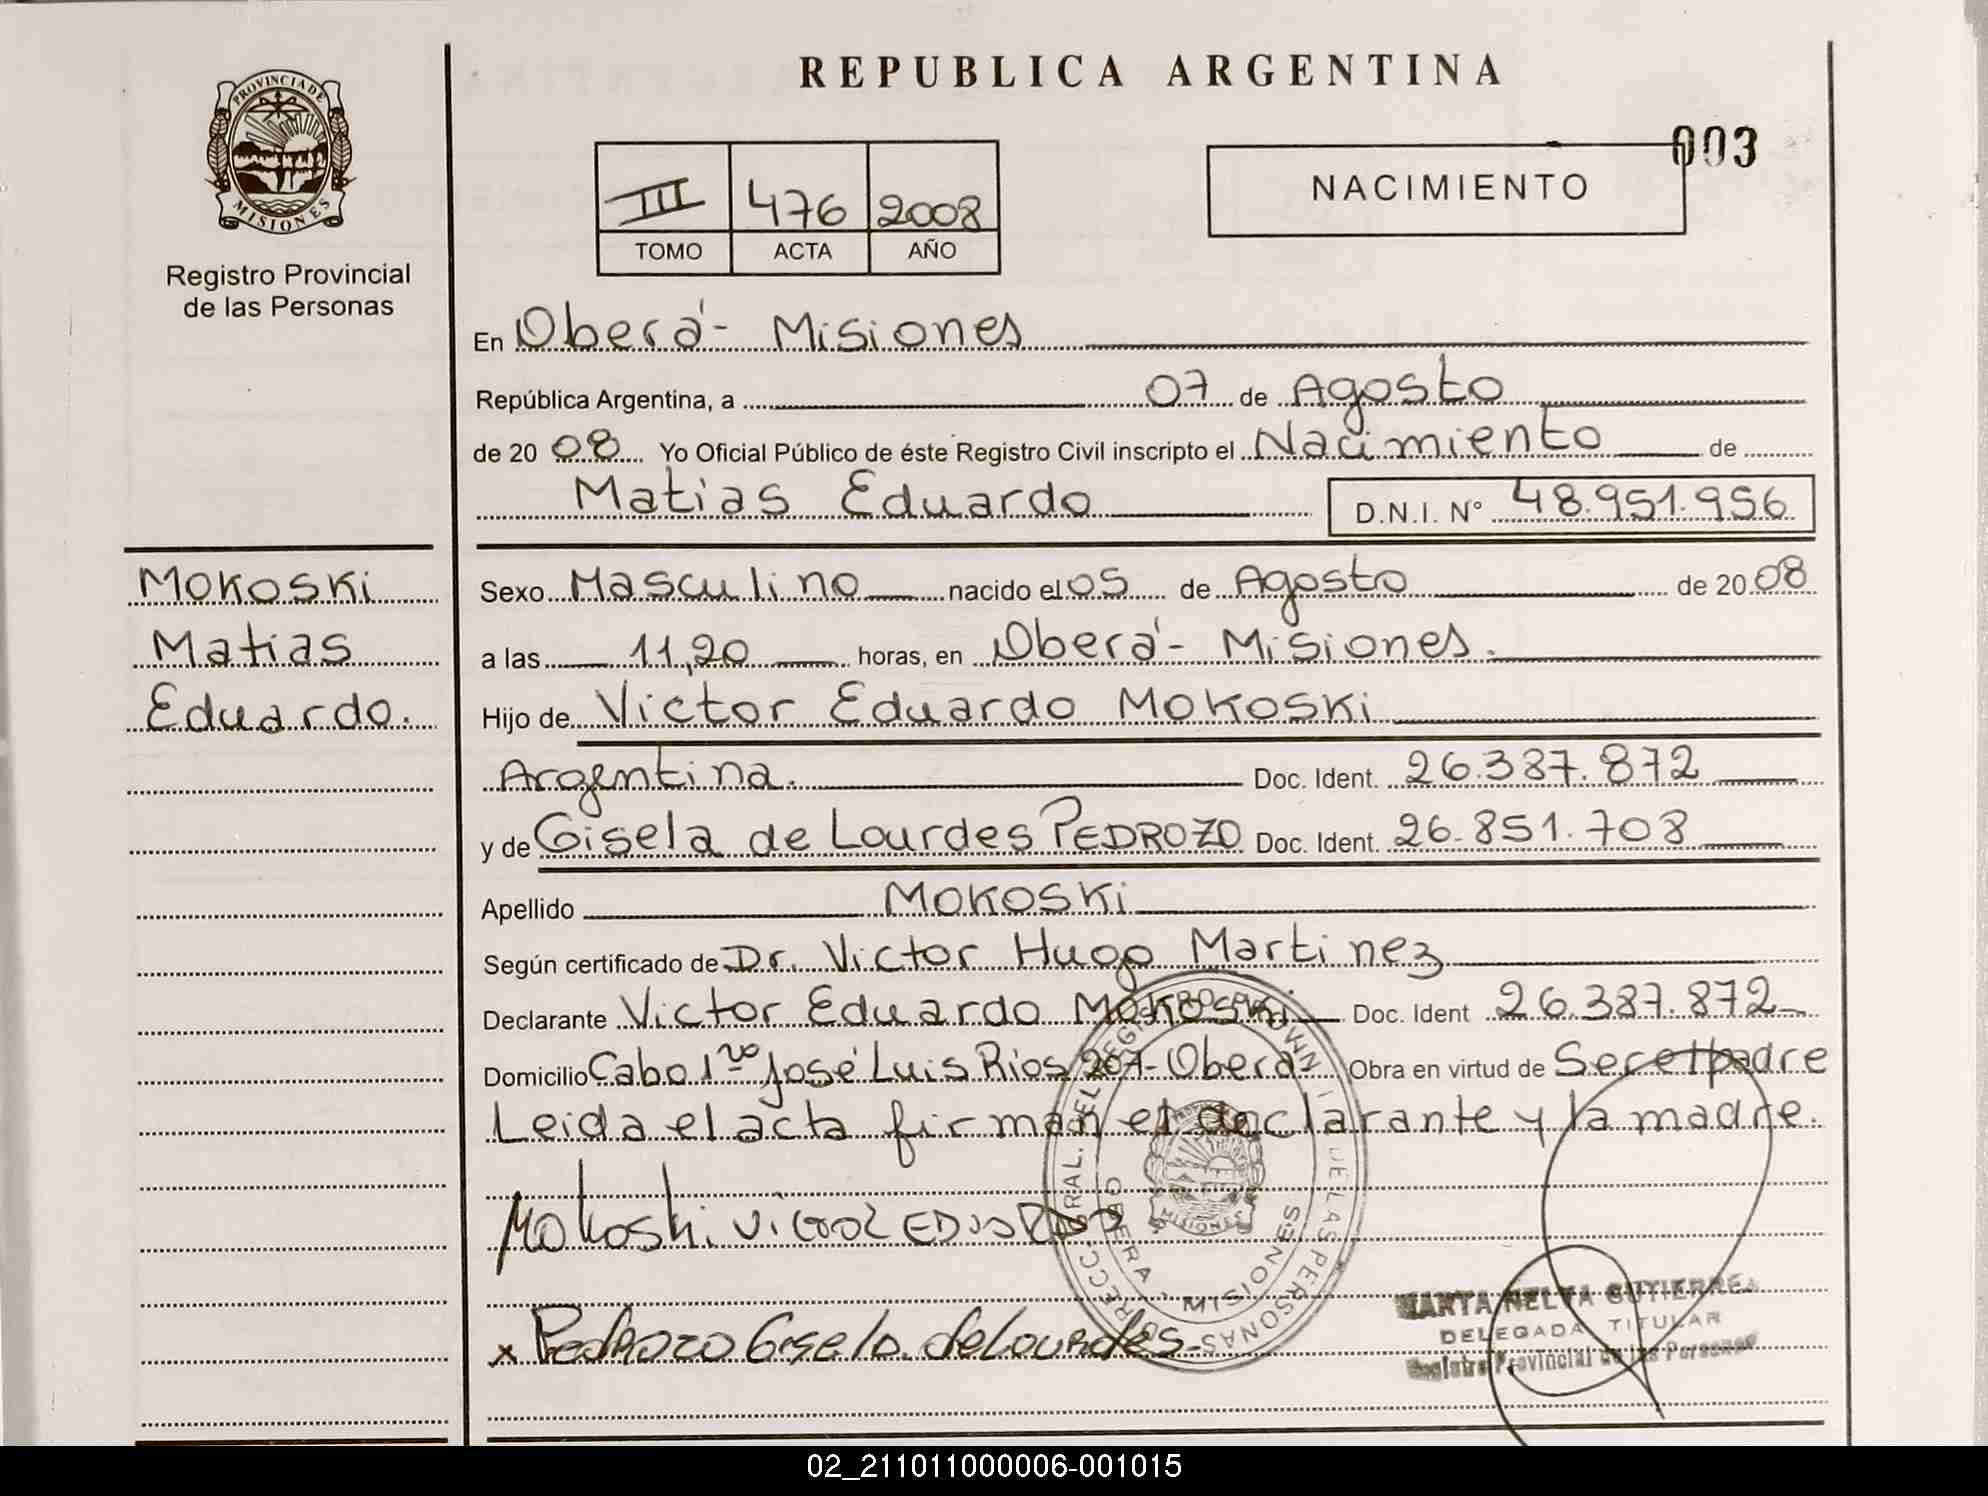 PROVINCIA DE
MISIONES
Registro Provincial
de las Personas
REPUBLICA ARGENTINA
003
NACIMIENTO
III 476 2008
TOMO ACTA AÑO
En Oberá - Misiones
República Argentina, a 07 de Agosto
de 20 08 Yo Oficial Público de éste Registro Civil inscripto el Nacimiento de
Matias Eduardo D.N.I. Nº 48.951.956
Mokoski
Matias
Eduardo.
Sexo Masculino nacido el 05 de Agosto de 20 08
a las 11,20 horas, en Oberá - Misiones.
Hijo de Victor Eduardo Mokoski
Argentina. Doc. Ident. 26.387.872
y de Gisela de Lourdes PEDROZO Doc. Ident. 26.851.708
Apellido Mokoski
Según certificado de Dr. Victor Hugo Martinez
Declarante Victor Eduardo Mokoski Doc. Ident 26.387.872
Domicilio Cabo 1ro José Luis Rios 207 - Oberá Obra en virtud de Ser el padre
Leida el acta firman el declarante y la madre.
Mokoski Victor EDUARDO
x Pedrozo Gisela de Lourdes
DE LAS PERSONAS
OBERA - MISIONES
MISIONES
MARTA NELVA GUTIERREZ
DELEGADA TITULAR
Registro Provincial de las Personas
02_211011000006-001015